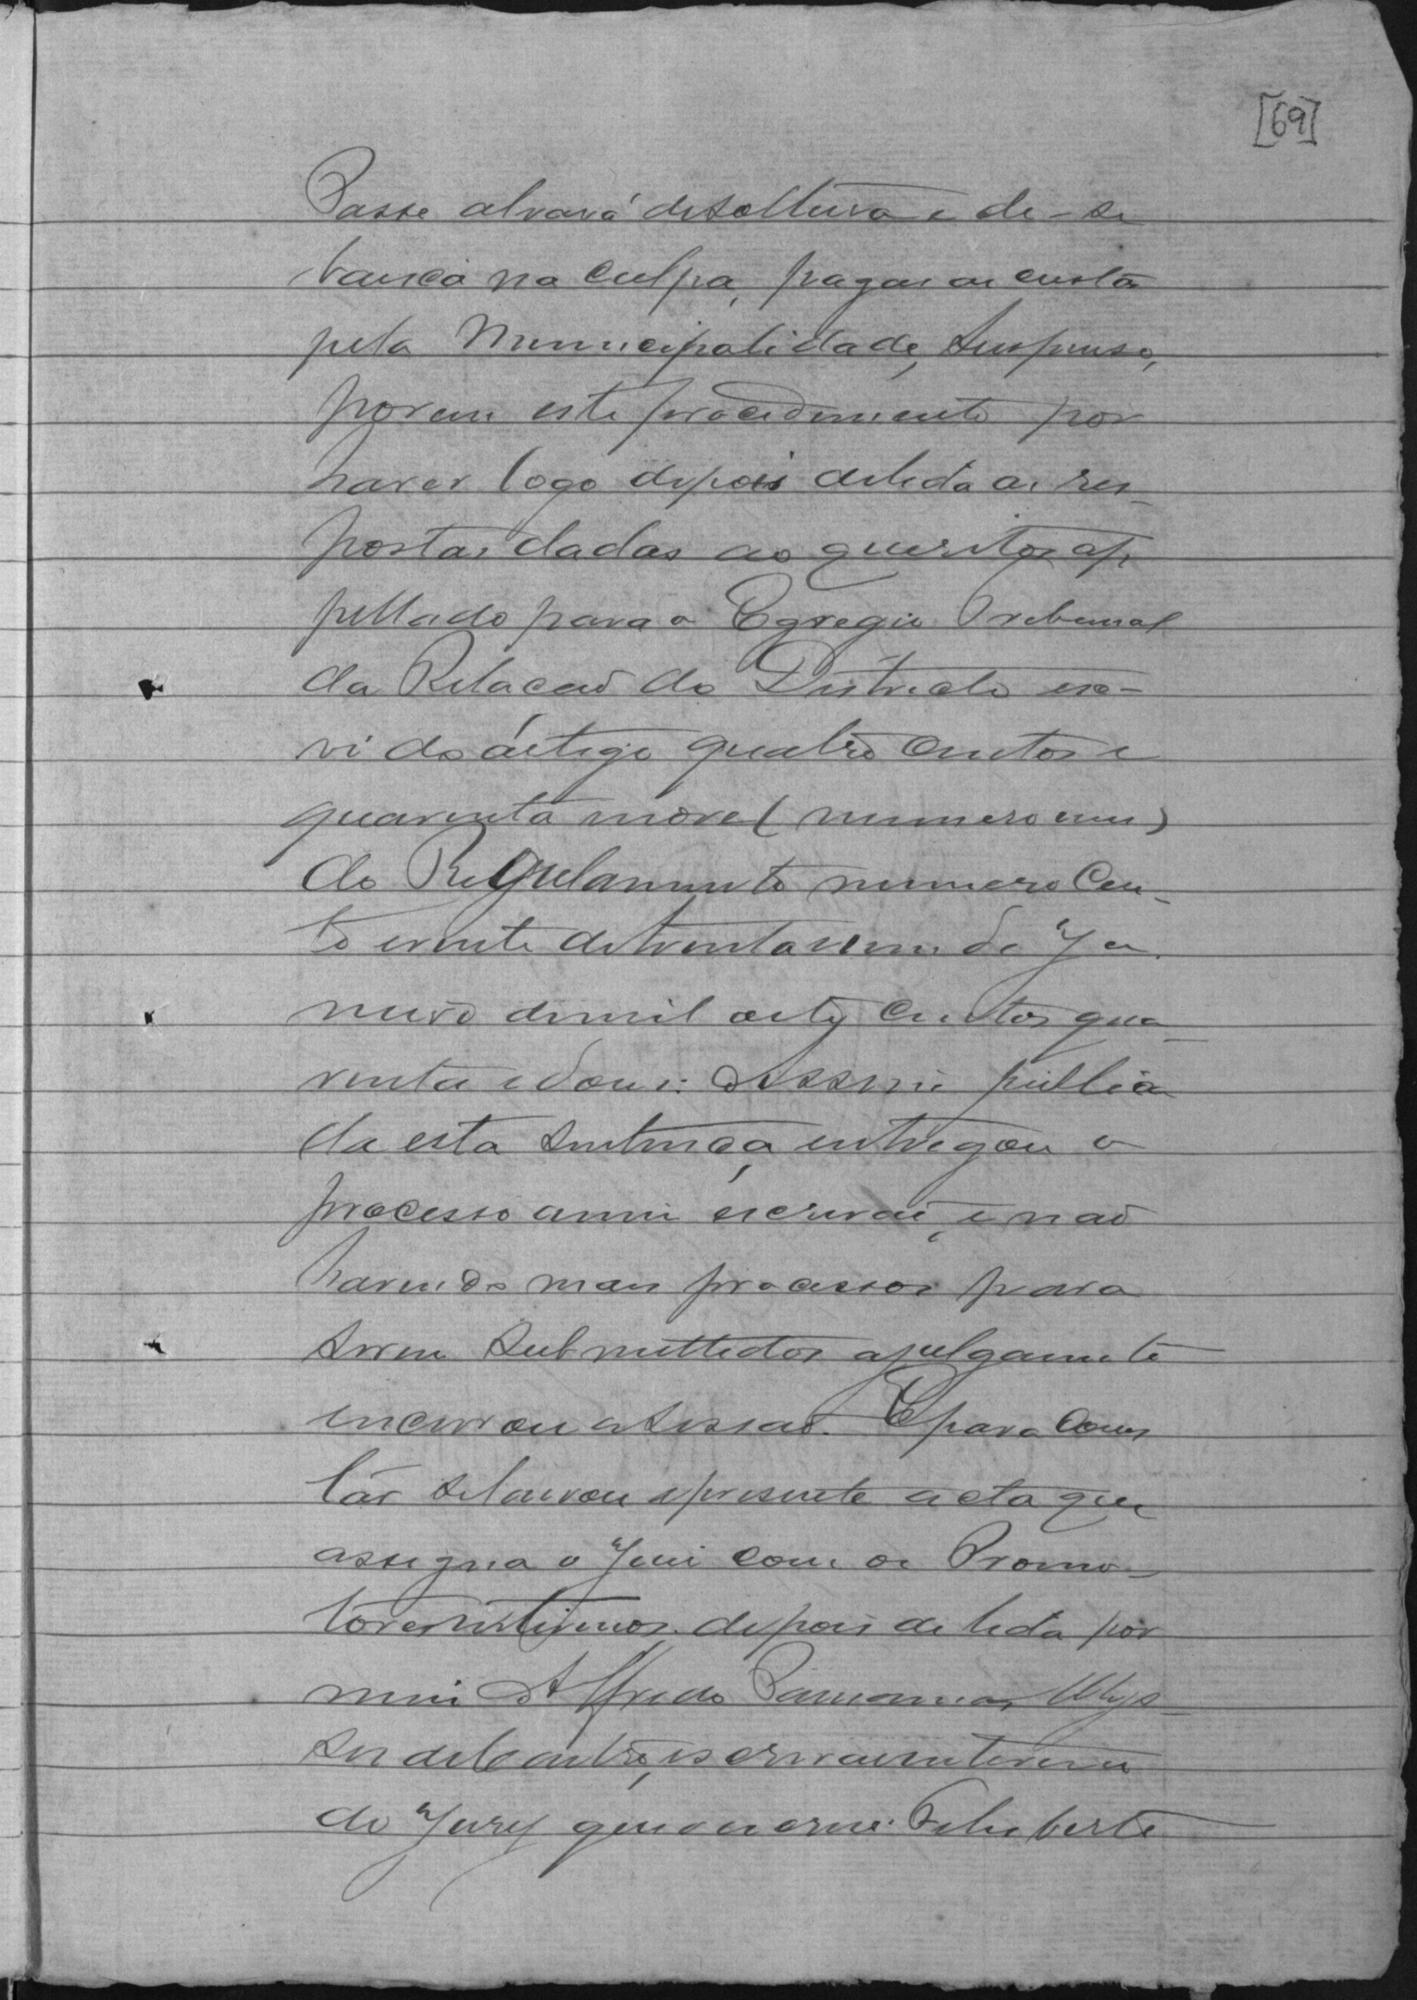 [69]
Passe alvará de soltura e dê-se
baixa na culpa, pagas as custas
pela Municipalidade, suspenso,
porem este procedimento por
haver logo depois de lida as res-
postas dadas ao quesitos ap
pellado para o Egregio Tribunal
da Relacaõ do Districto ex-
vi do artigo quatro centos e
quarenta nove (numero um)
do Regulamento numero Cen-
to e vinte de trinta e um de Ja
neiro de mil oito centos qua-
renta e dous: Assim publica
da esta sentença entregou o
processo a mim escrivaõ, e naõ
havendo mais processos para
serem submettidos a julgamento
encerrou a sessaõ. E para cons
tár se lavrou a presente acta que
assigna o Juiz com os Promo-
tores depois de lida por
mim Alfredo Ulys-
ses de Castro, escrivaõ interino
do Jury que o escrevi: Feliberto